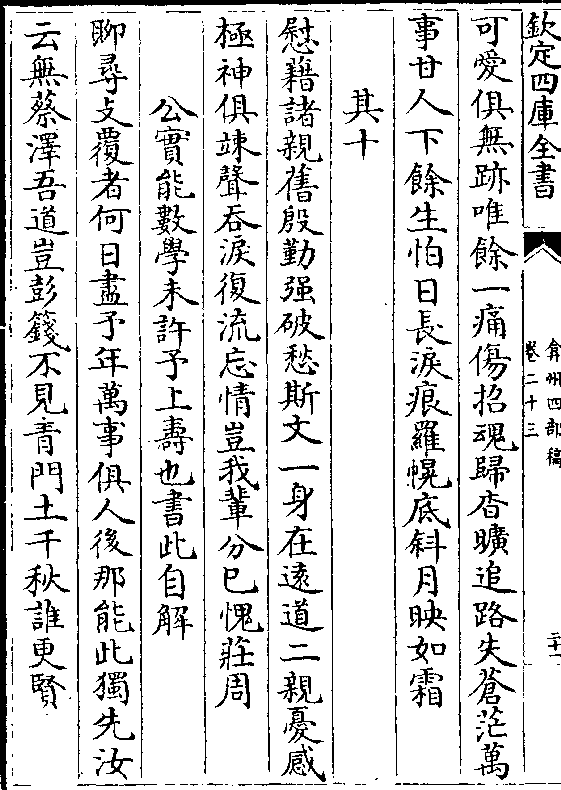 欽定四庫全書
弇州四部稿
卷二十三
二十一
可愛俱無跡唯餘一痛傷招魂歸杳曠追路失蒼茫萬
事甘人下餘生怕日長淚痕羅幌底斜月映如霜
其十
慰藉諸親舊殷勤强破愁斯文一身在遠道二親憂感
極神俱竦聲吞淚復流忘情豈我輩分已愧莊周
公實能數學未許予上壽也書此自解
聊尋攴覆者何日盡予年萬事俱人後那能此獨先汝
云無蔡澤吾道豈彭籛不見青門土千秋誰更賢